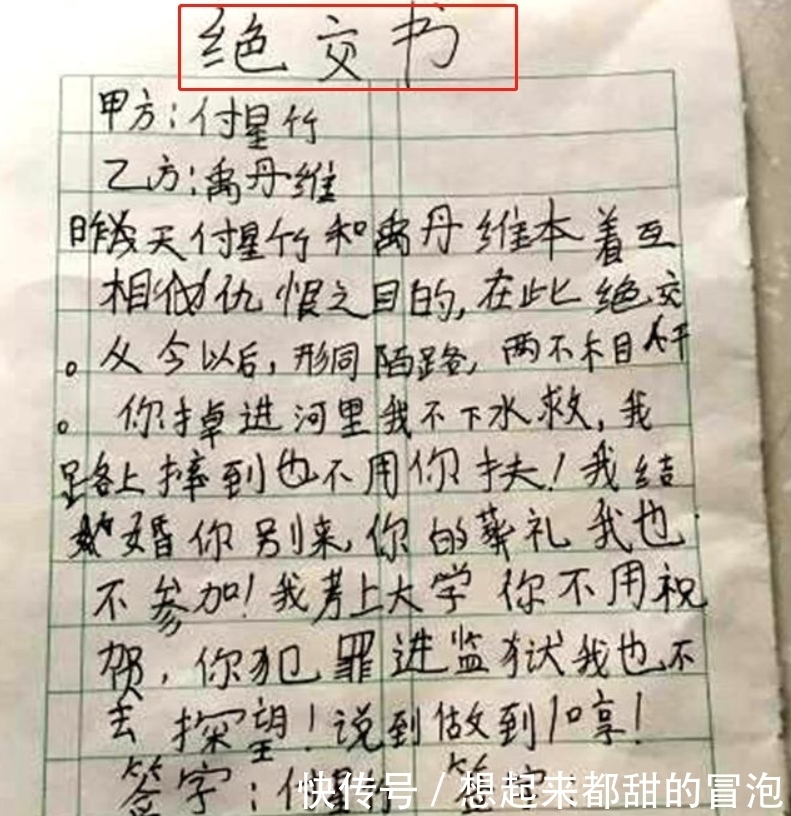 绝交书
甲方：付星竹
乙方：禹丹维
昨天付星竹和禹丹维本着互
相仇恨之目的，在此绝交
。从今以后，形同陌路，两不相干
。你掉进河里我不下水救，我
路上摔到也不用你扶！我结
婚你别来，你的葬礼我也
不参加！我考上大学你不用祝
贺，你犯罪进监狱我也不
去探望！说到做到！哼！
签字：付星 签字：
快传号 / 想起来都甜的冒泡